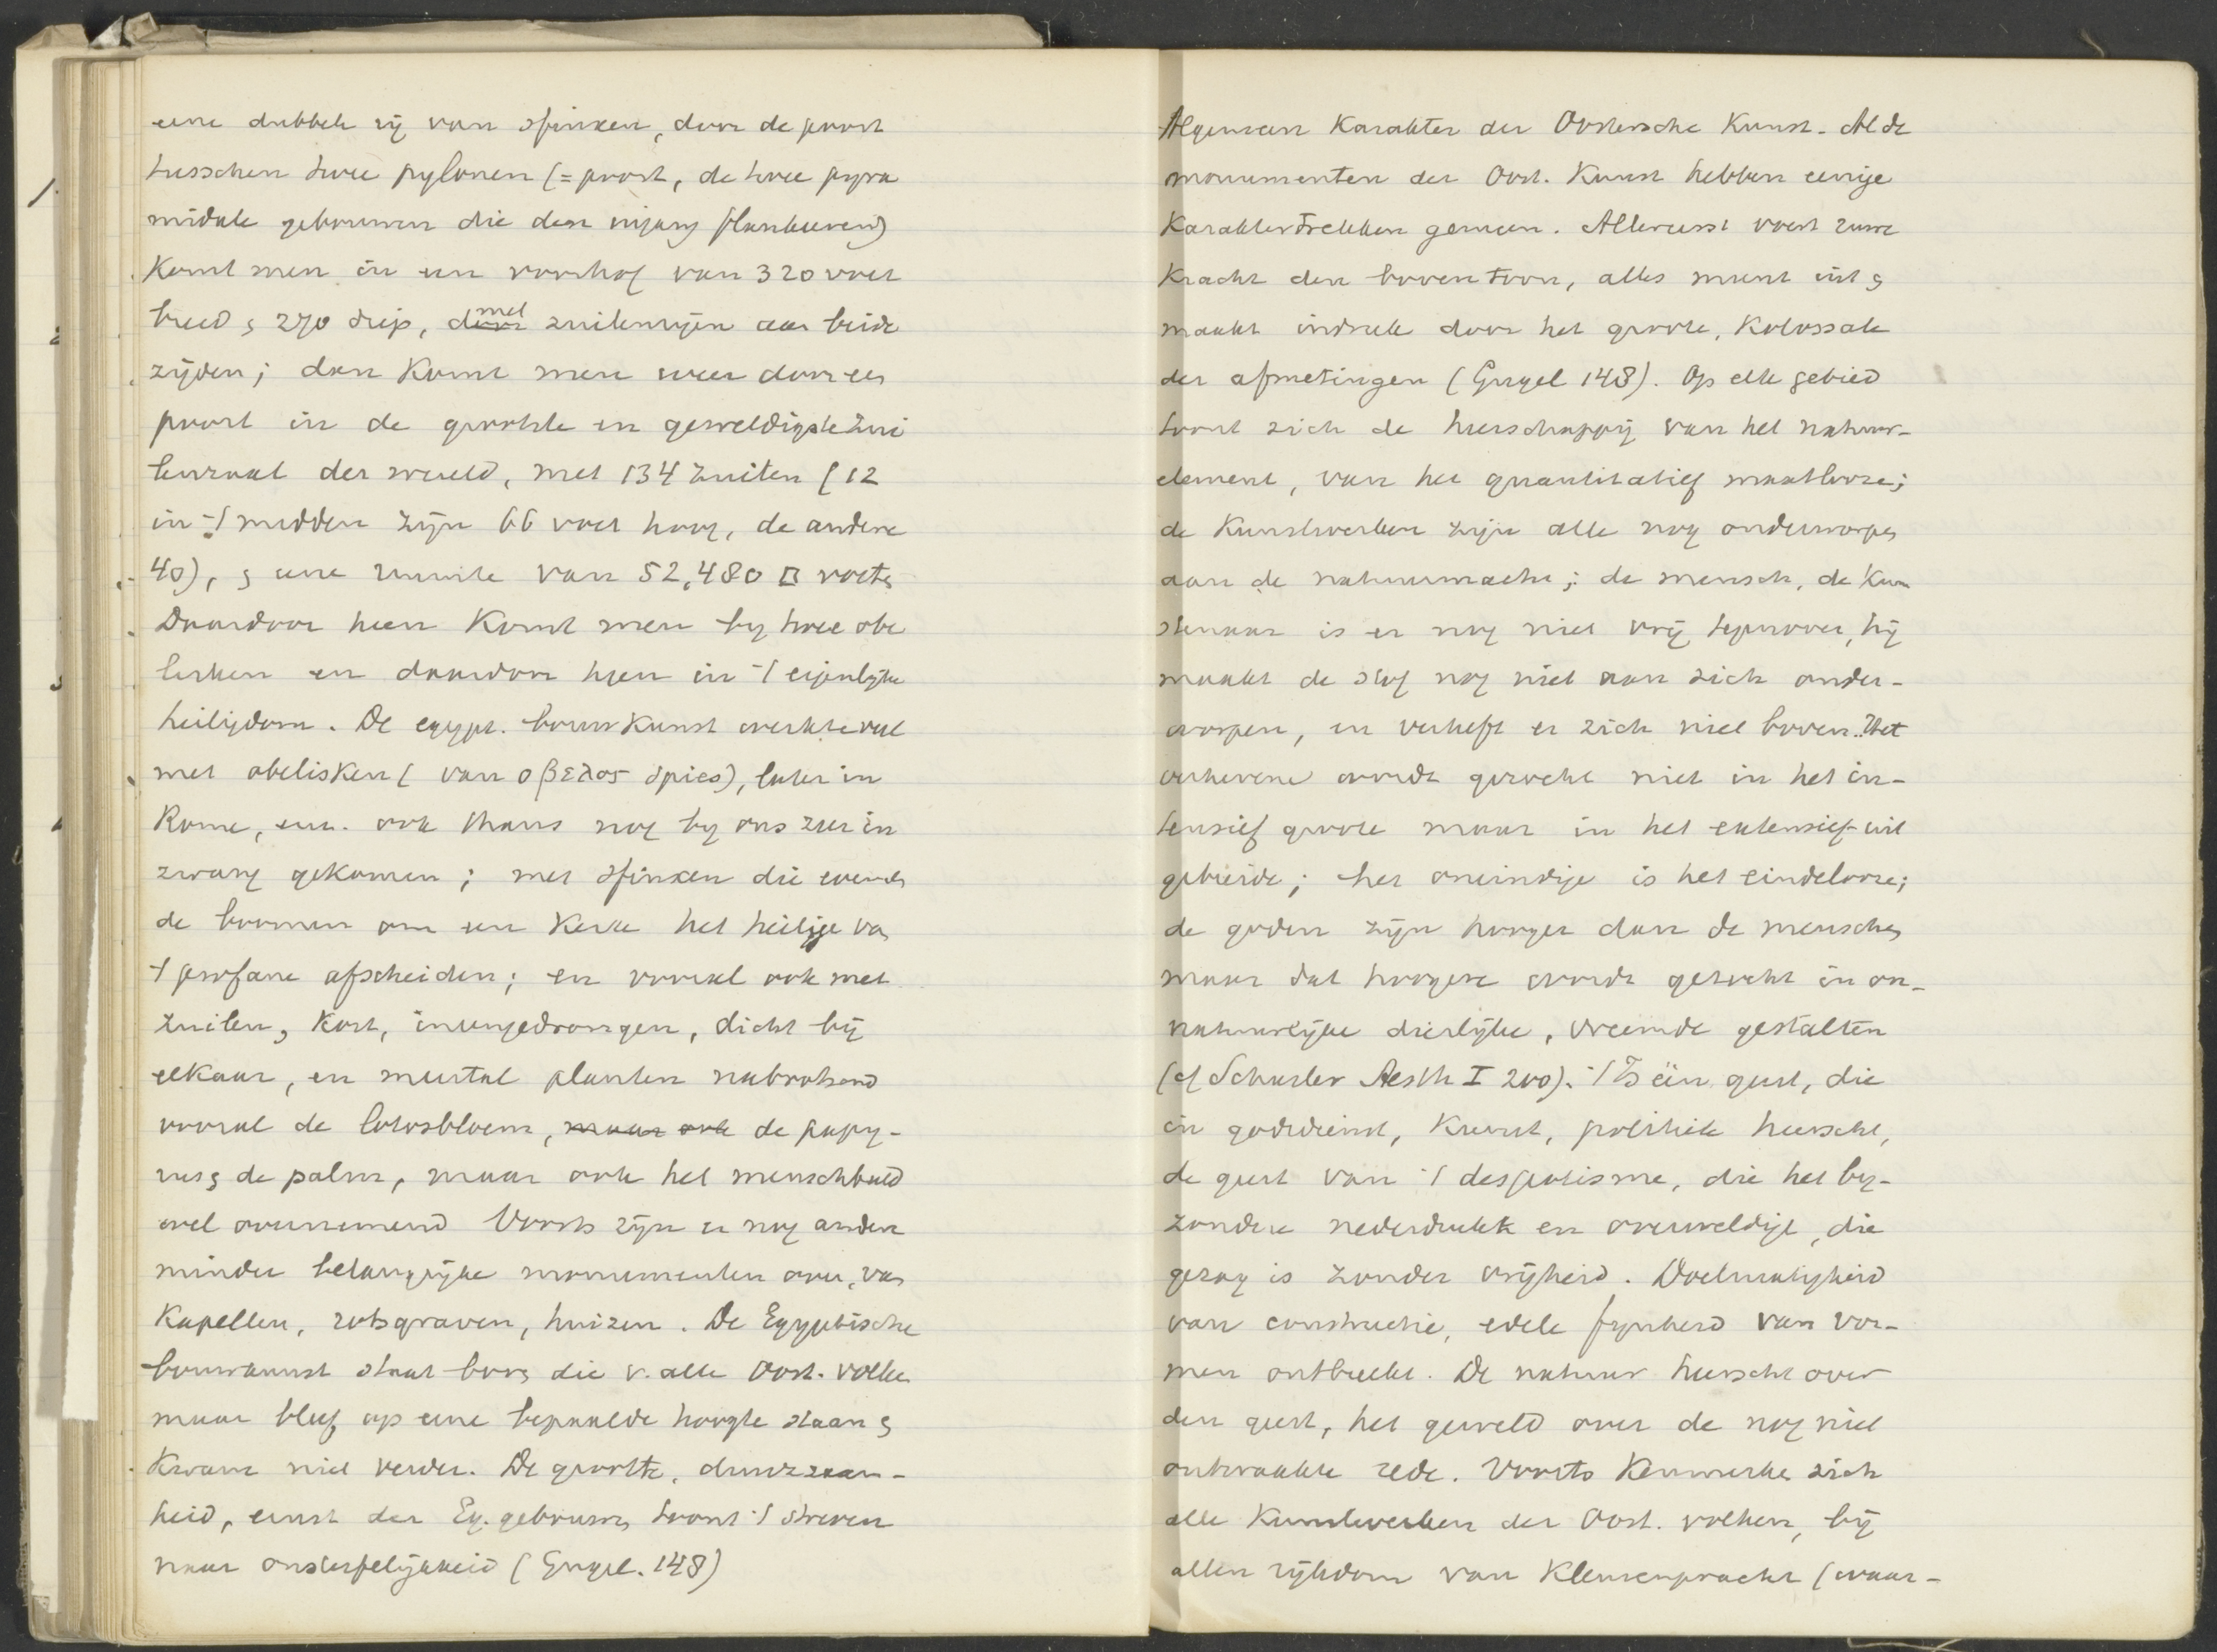 eene dubbele rij van sfinxen, door de poort
tusschen twee pylonen (= poort, de twee pyra
midale gebouwen die den ingang flankeeren)
komt men in een voorhof van 320 voet
breed & 270 diep, d̶o̶o̶r̶ met zuilenrijen aan beide
zijden; dan komt men weer door een
poort in de grootste en geweldigste zui
lenzaal der wereld, met 134 zuilen (12
in 't midden zijn 66 voet hoog, de andere
40), & eene ruimte van 52,480 □ voeten
Daardoor heen komt men by twee obe
lisken en daardoor heen in 't eigenlijke
heiligdom. De egypt. bouwkunst werkte veel
met obelisken (van οβελος spies), later in
Rome, en. ook thans nog by ons zeer in
zwang gekomen; met sfinxen die evenals
de boomen om een kerk het heilige van
't profane afscheiden; en vooral ook met
zuilen, kort, ineengedrongen, dicht bij
elkaar, en meestal planten nabootsend
vooral de lotosbloem, m̶a̶a̶r̶ o̶o̶k̶ de papy-
rus & de palm, maar ook het menschbeeld
wel overnemend Voorts zijn er nog andere
minder belangrijke monumenten over, van
kapellen, rotsgraven, huizen. De Egyptische
bouwkunst staat boven die v. alle Oost. volken
maar bleef op eene bepaalde hoogte staan &
kwam niet verder. De grootte, duurzaam-
heid, ernst der Eg. gebouwen toont 't streven
naar onsterfelijkheid (Engel. 148)
Algemeen Karakter der Oostersche Kunst. Al de
monumenten der Oost. Kunst hebben eenige
Karaktertrekken gemeen. Allereerst voert ruwe
Kracht den boventoon, alles munt uit &
maakt indruk door het groote, Kolossale
der afmetingen (Engel 148). Op elk gebied
toont zich de heerschappij van het natuur-
element, van het quantitatief maatlooze;
de Kunstwerken zijn alle nog onderworpen
aan de natuurmacht; de mensch, de Kun
stenaar is er nog niet vrij tegenover, hij
maakt de stof nog niet aan zich onder-
worpen, en verheft er zich niet boven. Het
verhevene wordt gezocht niet in het in-
tensief groote maar in het extensief-uit
gebreide; het oneindige is het eindelooze;
de goden zijn hooger dan de menschen
maar dat hoogere wordt gezocht in on-
natuurlijke dierlijke, vreemde gestalten
(cf Schasler Aesth I 200). 't Is één geest, die
in godsdienst, Kunst, politiek heerscht,
de geest van 't despotisme, die het by-
zondere nederdrukt en overweldigt, die
gezag is zonder vrijheid. Doelmatigheid
van constructie, edele fijnheid van vor-
men ontbreekt. De natuur heerscht over
den geest, het geweld over de nog niet
ontwaakte rede. Voorts Kenmerken zich
alle Kunstwerken der Oost. volken, bij
allen rijkdom van Kleurenpracht (waar-